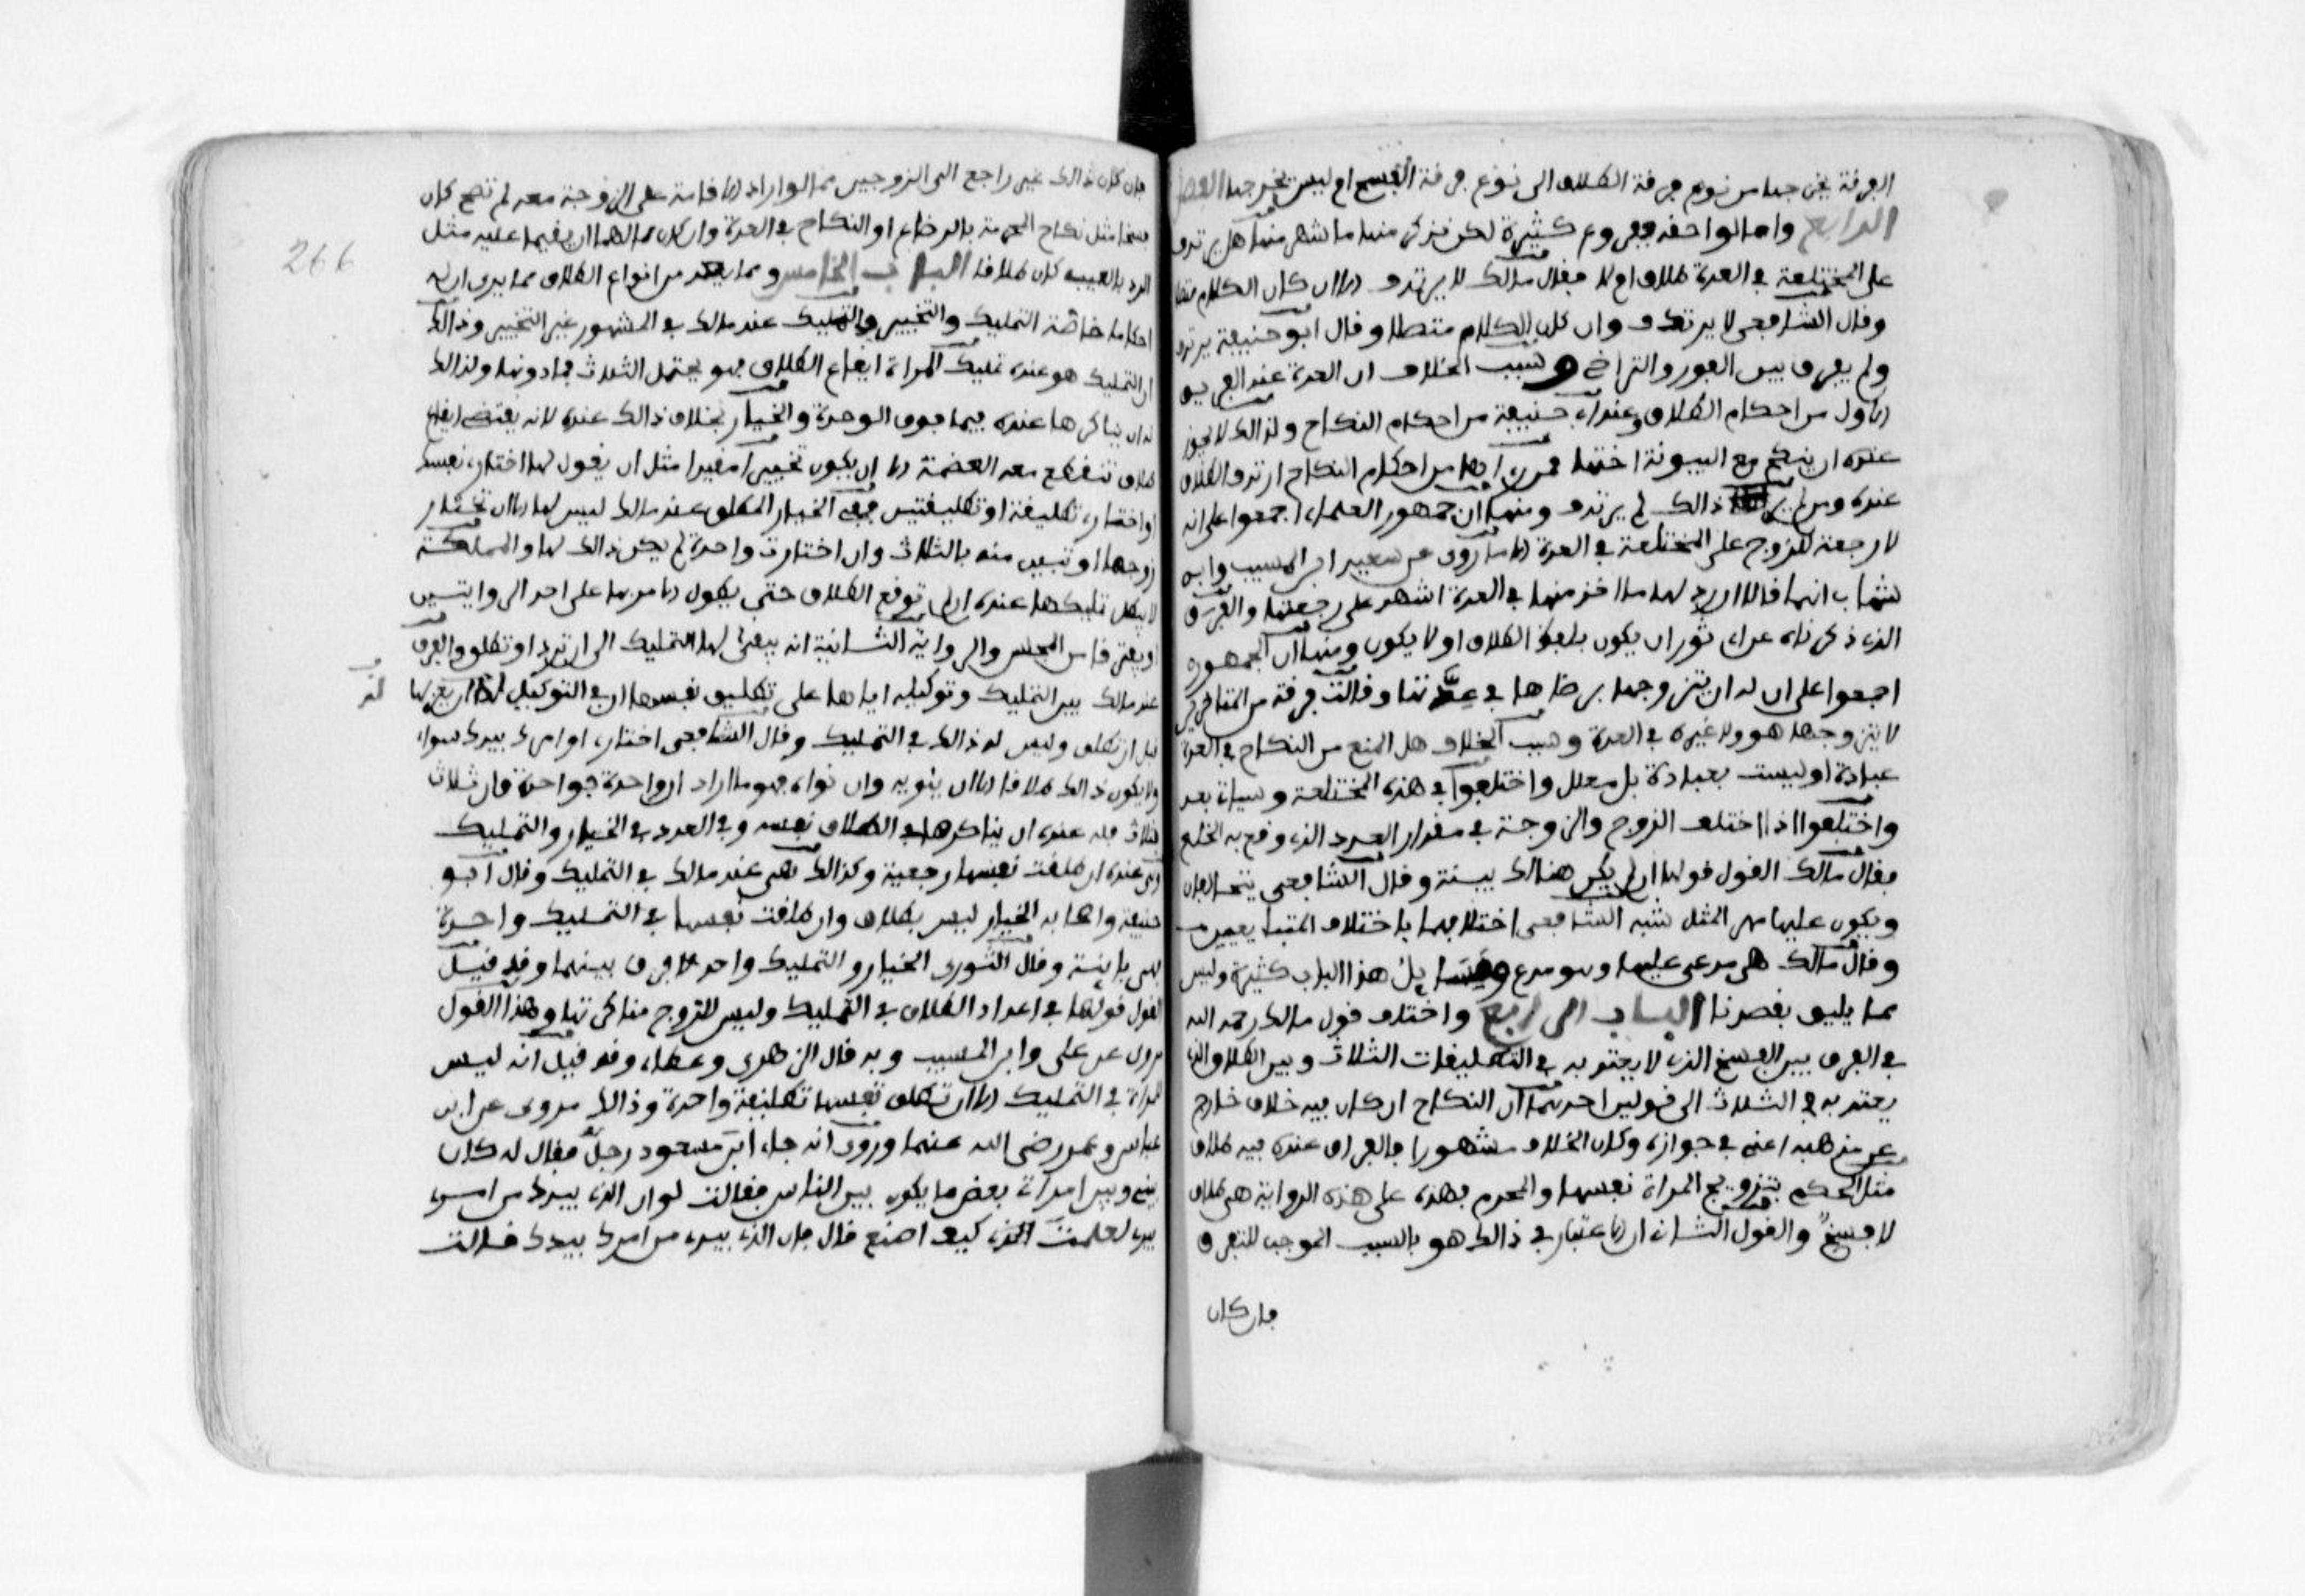 الفرقة يخرجها من نوع فرقة الطلاق الى نوع فرقة الفسخ ام ليس يخرجها الفصل
الرابع واما لواحقه ففروع كثيرة لكن نذكر منها ما شهر منها هل يرتدف
على المختلعة في العدة طلاق ام لا فقال مالك لا يرتدف الا ان كان الكلام متصلا
وقال الشافعي لا يرتدف وان كان الكلام متصلا وقال ابو حنيفة يرتدف
ولم يفرق بين الفور والتراخي وسبب الخلاف ان العدة عند الفريق
الاول من احكام الطلاق وعند ابي حنيفة من احكام النكاح ولذالك لا يجوز
عنده ان ينكح مع البينونة اختها فمن راها من احكام النكاح ارتدف الطلاق
عنده ومن لم ير ذالك لم يرتدف ومنها ان جمهور العلماء اجمعوا على انه
لا رجعة للزوج على المختلعة في العدة الا ما روى عن سعيد ابن المسيب وابن
شهاب انهما قالا ان رد لها ما اخذ منها في العدة اشهد على رجعتها والفرق
الذي ذكرناه عن ابي ثور ان يكون بلفظ الطلاق او لا يكون ومنها ان الجمهور
اجمعوا على ان له ان يتزوجها برضاها في عدتها وقالت فرقة من المتاخرين
لا يتزوجها هو ولا غيره في العدة وسبب الخلاف هل المنع من النكاح في العدة
عبادة او ليست بعبادة بل معلل واختلفوا في هذه المختلعة وسياتي بعد
واختلفوا اذا اختلف الزوج والزوجة في مقدار العدد الذي وقع به الخلع
فقال مالك القول قولها ان لم يكن هنالك بينة وقال الشافعي يتحالفان
ويكون عليها مهر المثل شبه الشافعي اختلافهما باختلاف المتبايعين
وقال مالك هي مدعى عليها وهو مدع ومسايل هذا الباب كثيرة وليس
مما يليق بقصدنا الباب الرابع واختلف قول مالك رحمه الله
في الفرق بين الفسخ الذي لا يعتد به في التطليقات الثلاث وبين الطلاق الذي
يعتد به في الثلاث الى قولين احدهما ان النكاح ان كان فيه خلاف خارج
عن مذهبه اعنى في جوازه وكان الخلاف مشهورا فالفراق عنده فيه طلاق
مثل الحكم بتزويج المراة نفسها والمحرم فهذه على هذه الرواية هي طلاق
لا فسخ والقول الثاني ان الاعتبار في ذالك هو بالسبب الموجب للتفرق
فان كان
فان كان ذالك غير راجع الى الزوجين مما لو اراد الاقامة على الزوجة معه لم تصح كان
فسخا مثل نكاح المحرمة بالرضاع او النكاح في العدة وان كان مما لهما ان يقيما عليه مثل
الرد بالعيب كان طلاقا الباب الخامس ومما يعد من انواع الطلاق مما يرى ان له
احكاما خاصة التمليك والتخيير والتمليك عند مالك في المشهور غير التخيير وذالك
ان التمليك هو عنده تمليك المراة ايقاع الطلاق فهو يحتمل الثلاث فما دونها ولذالك
له ان يناكرها عنده فيما فوق الوحدة والخيار بخلاف ذالك عنده لانه يقتضى ايقاع
طلاق تنقطع معه العصمة الا ان يكون تخييرا مقيدا مثل ان يقول لها اختارى نفسك
او اختارى تطليقة او تطليقتين ففى الخيار المطلق عند مالك ليس لها الا ان تختار
زوجها او تبين منه بالثلاث وان اختارت واحدة لم يكن ذالك لها والمملكة
لا يبطل تمليكها عنده ان لم توقع الطلاق حتى يطول الامر بها على احد الروايتين
او يفترقا من المجلس والرواية الثانية انه يبقى لها التمليك الى ان ترد او تطلق والفرق
عند مالك بين التمليك وتوكيله اياها على تطليق نفسها ان في التوكيل له ان يعزلها
قبل ان تطلق وليس له ذالك في التمليك وقال الشافعي اختارى او امرك بيدك سواء
ولا يكون ذالك طلاقا الا ان ينويه وان نواه فهو ما اراد ان واحدة فواحدة وان ثلاث
فثلاث فله عنده ان يناكرها في الطلاق نفسه وفي العدد في الخيار والتمليك
وهى عنده ان طلقت نفسها رجعية وكذالك هى عند مالك في التمليك وقال ابو
حنيفة واصحابه الخيار ليس بطلاق وان طلقت نفسها في التمليك واحدة
فهى باينة وقال الثورى الخيار والتمليك واحد لا فرق بينهما وقد قيل
القول قولها في اعداد الطلاق في التمليك وليس للزوج مناكرتها وهذا القول
مروى عن على وابن المسيب وبه قال الزهرى وعطاء وقد قيل انه ليس
للمراة في التمليك الا ان تطلق نفسها تطليقة واحدة وذالك مروى عن ابن
عباس وعمر رضى الله عنهما وروى انه جاء ابن مسعود رجل فقال له كان
بينى وبين امراتى بعض ما يكون بين الناس فقالت لو ان الذى بيدك من امرى
بيدى لعلمت كيف اصنع قال فان الذى بيدى من امرك بيدك قالت
266